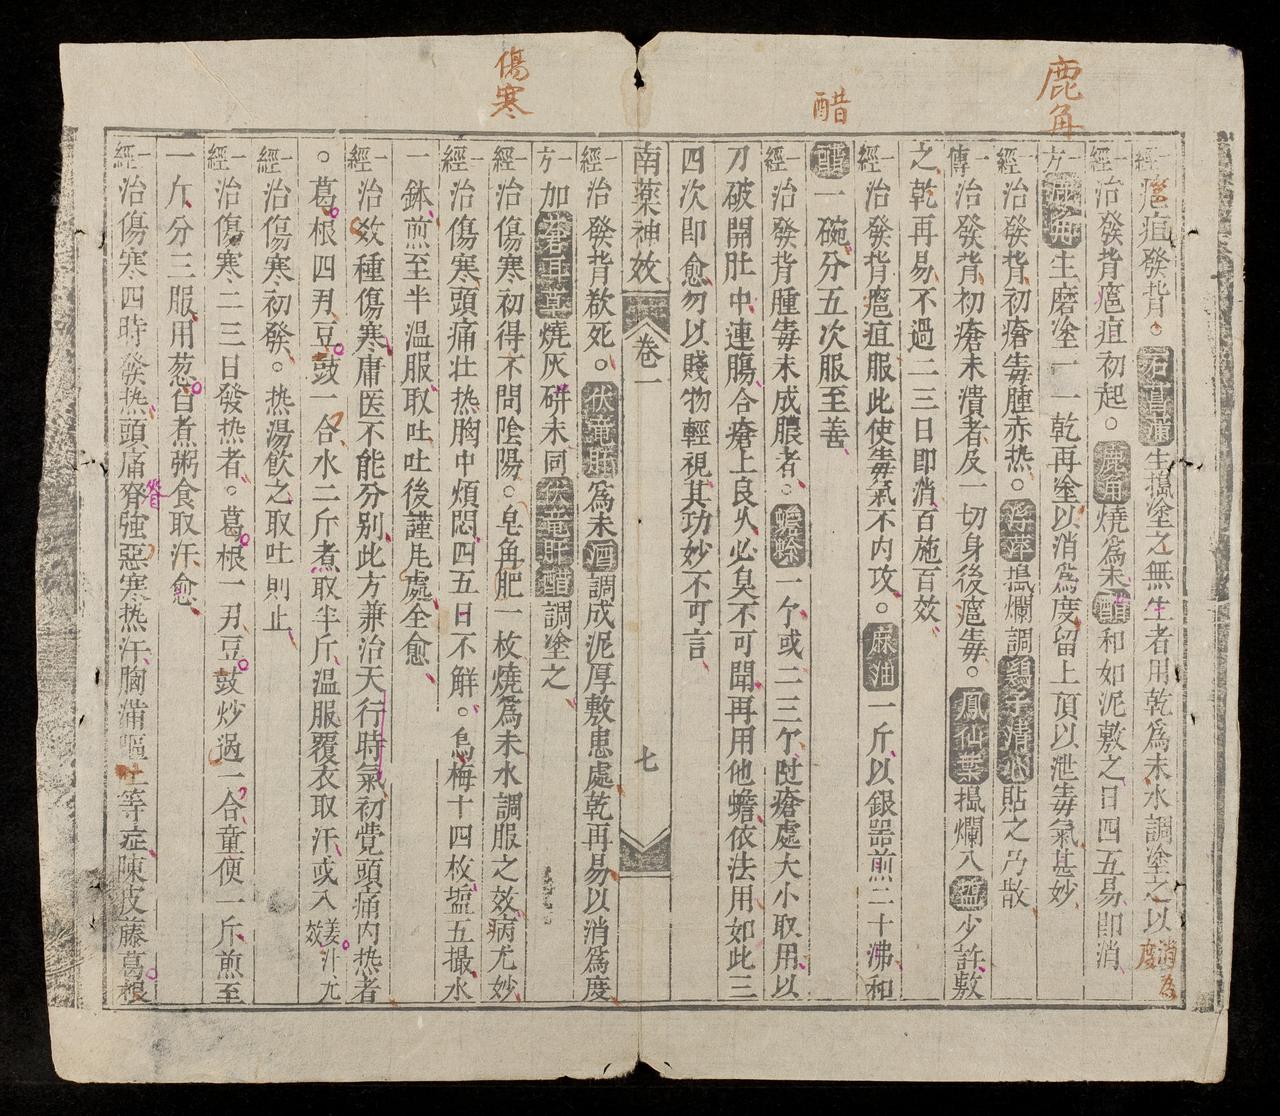 鹿角
醋
傷寒
一經瘟疽發背。石菖蒲生搗塗之無生者用乾爲末水調塗之以消為度
一經治發背瘟疽初起。鹿角燒爲末醋和如泥敷之日四五易即消
一方鹿角生磨塗一一乾再塗以消爲度留上頂以泄毒氣甚妙
一經治發背初瘡毒腫赤热。浮萍搗爛調鷄子清心貼之乃散
一傳治發背初瘡未潰者及一切身後瘟毒。鳳仙葉搗爛入塩少許敷
之乾再易不過二三日即消百施百效
一經治發背瘟疽服此使毒氣不内攻。麻油一斤以銀器煎二十沸和
醋一碗分五次服至善
一經治發背腫毒未成膿者。蟾蜍一亇或二三亇隨瘡處大小取用以
刀破開肚中連腸合瘡上良久必臭不可聞再用他蟾依法用如此三
四次即愈勿以賤物輕視其功妙不可言
南葯神效 卷一 七
一經治發背欲死。伏竜肝爲末酒調成泥厚敷患處乾再易以消爲度
一方加蒼耳草燒灰研末同伏竜肝醋調塗之
一經治傷寒初得不問陰陽。皂角肥一枚燒爲末水調服之效病尤妙
一經治傷寒頭痛壮热胸中煩悶四五日不解。烏梅十四枚塩五撮水
一鉢煎至半温服取吐吐後謹風處全愈
一經治效種傷寒庸医不能分别此方兼治天行時氣初覚頭痛内热者
。葛根四刄豆豉一合水二斤煮取半斤温服覆衣取汗或入姜汁尤效
一經治傷寒初發。热湯飲之取吐則止
一經治傷寒二三日發热者。葛根一刄豆豉炒過一合童便一斤煎至
一斤分三服用葱白煮粥食取汗愈
一經治傷寒四時發热頭痛脊強惡寒热汗胸滿嘔吐等症陳皮藤葛根
脊